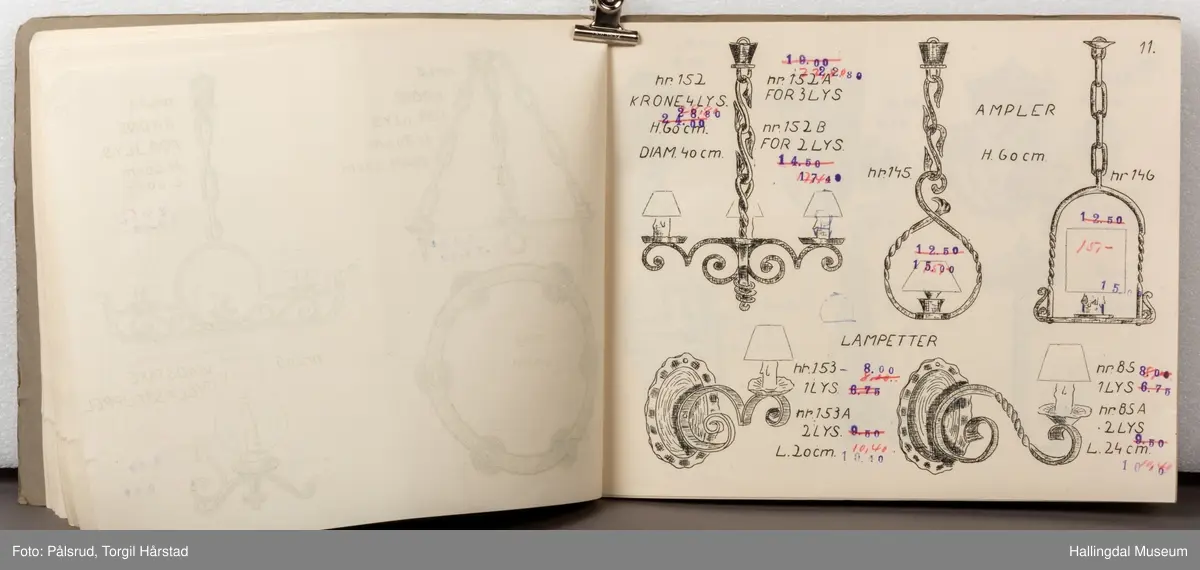 11.
nr 152
KRONE 4 LYS.
24.00
28.80
H. 60 cm.
DIAM. 40 cm.
19.00
22.80
nr 152 A
FOR 3 LYS
nr. 152 B
FOR 2 LYS.
14.50
17.40
AMPLER
H. 60 cm.
nr. 145
12.50
15.00
nr 146
12.50
15,-
LAMPETTER
nr. 153 - 8.00
1 LYS 6.75
nr. 153 A
2 LYS. 9.50
10,40
L. 20 cm. 10.40
nr 85 8.00
1 LYS 6.75
nr. 85 A
2 LYS
9.50
L. 24 cm.
Foto: Pålsrud, Torgil Hårstad
Hallingdal Museum